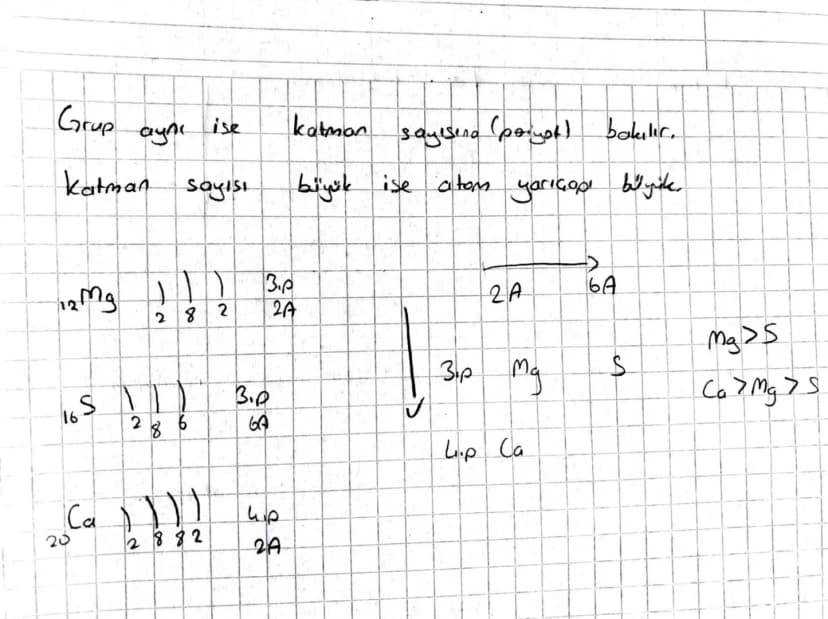 Grup aynı ise katman sayısına (periyot) bakılır.
Katman sayısı büyük ise atom yarıçapı büyük.
12Mg 2 8 2 3.p 2A
16S 2 8 6 3.p 6A
20Ca 2 8 8 2 4.p 2A
2A 6A
3.p Mg S
4.p Ca
Mg>S
Ca>Mg>S